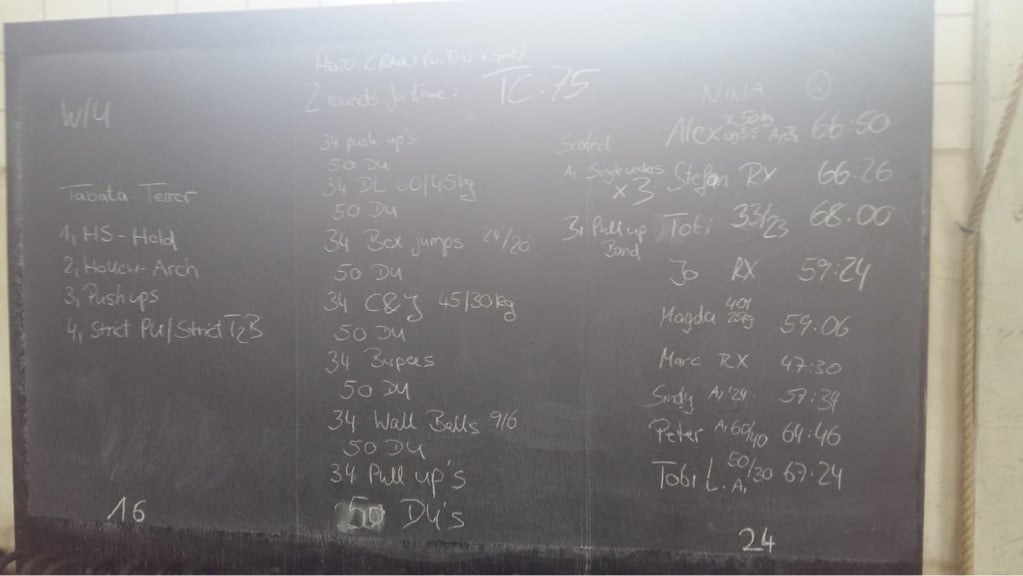 W/U
Tabata-Terror
1, HS-Hold
2, Hollow-Arch
3, Push ups
4, Strict PU/Strict T2B
16
HERO: CRAIN (w. DU + )
2 rounds for time: TC: 75
34 push up's
50 DU
34 DL 60/45kg
50 DU
34 Box jumps 24/20
50 DU
34 C&J 45/30kg
50 DU
34 Burpees
50 DU
34 Wall Balls 9/6
50 DU
34 Pull up's
50 DU's
Scaled
A, Singleunders
x3
3, Pull up
Band
NINA
Alex 66:50
Stefan RX 66:26
Tobi 33/23 68:00
Jo RX 59:24
Magda 59:06
Marc RX 47:30
57:39
Peter A, 60/40 64:46
Tobi L. 50/30 A, 67:24
24